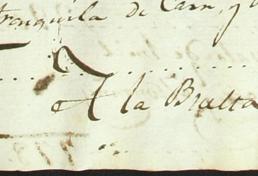 tranquila de Carn, y
A la Bualta